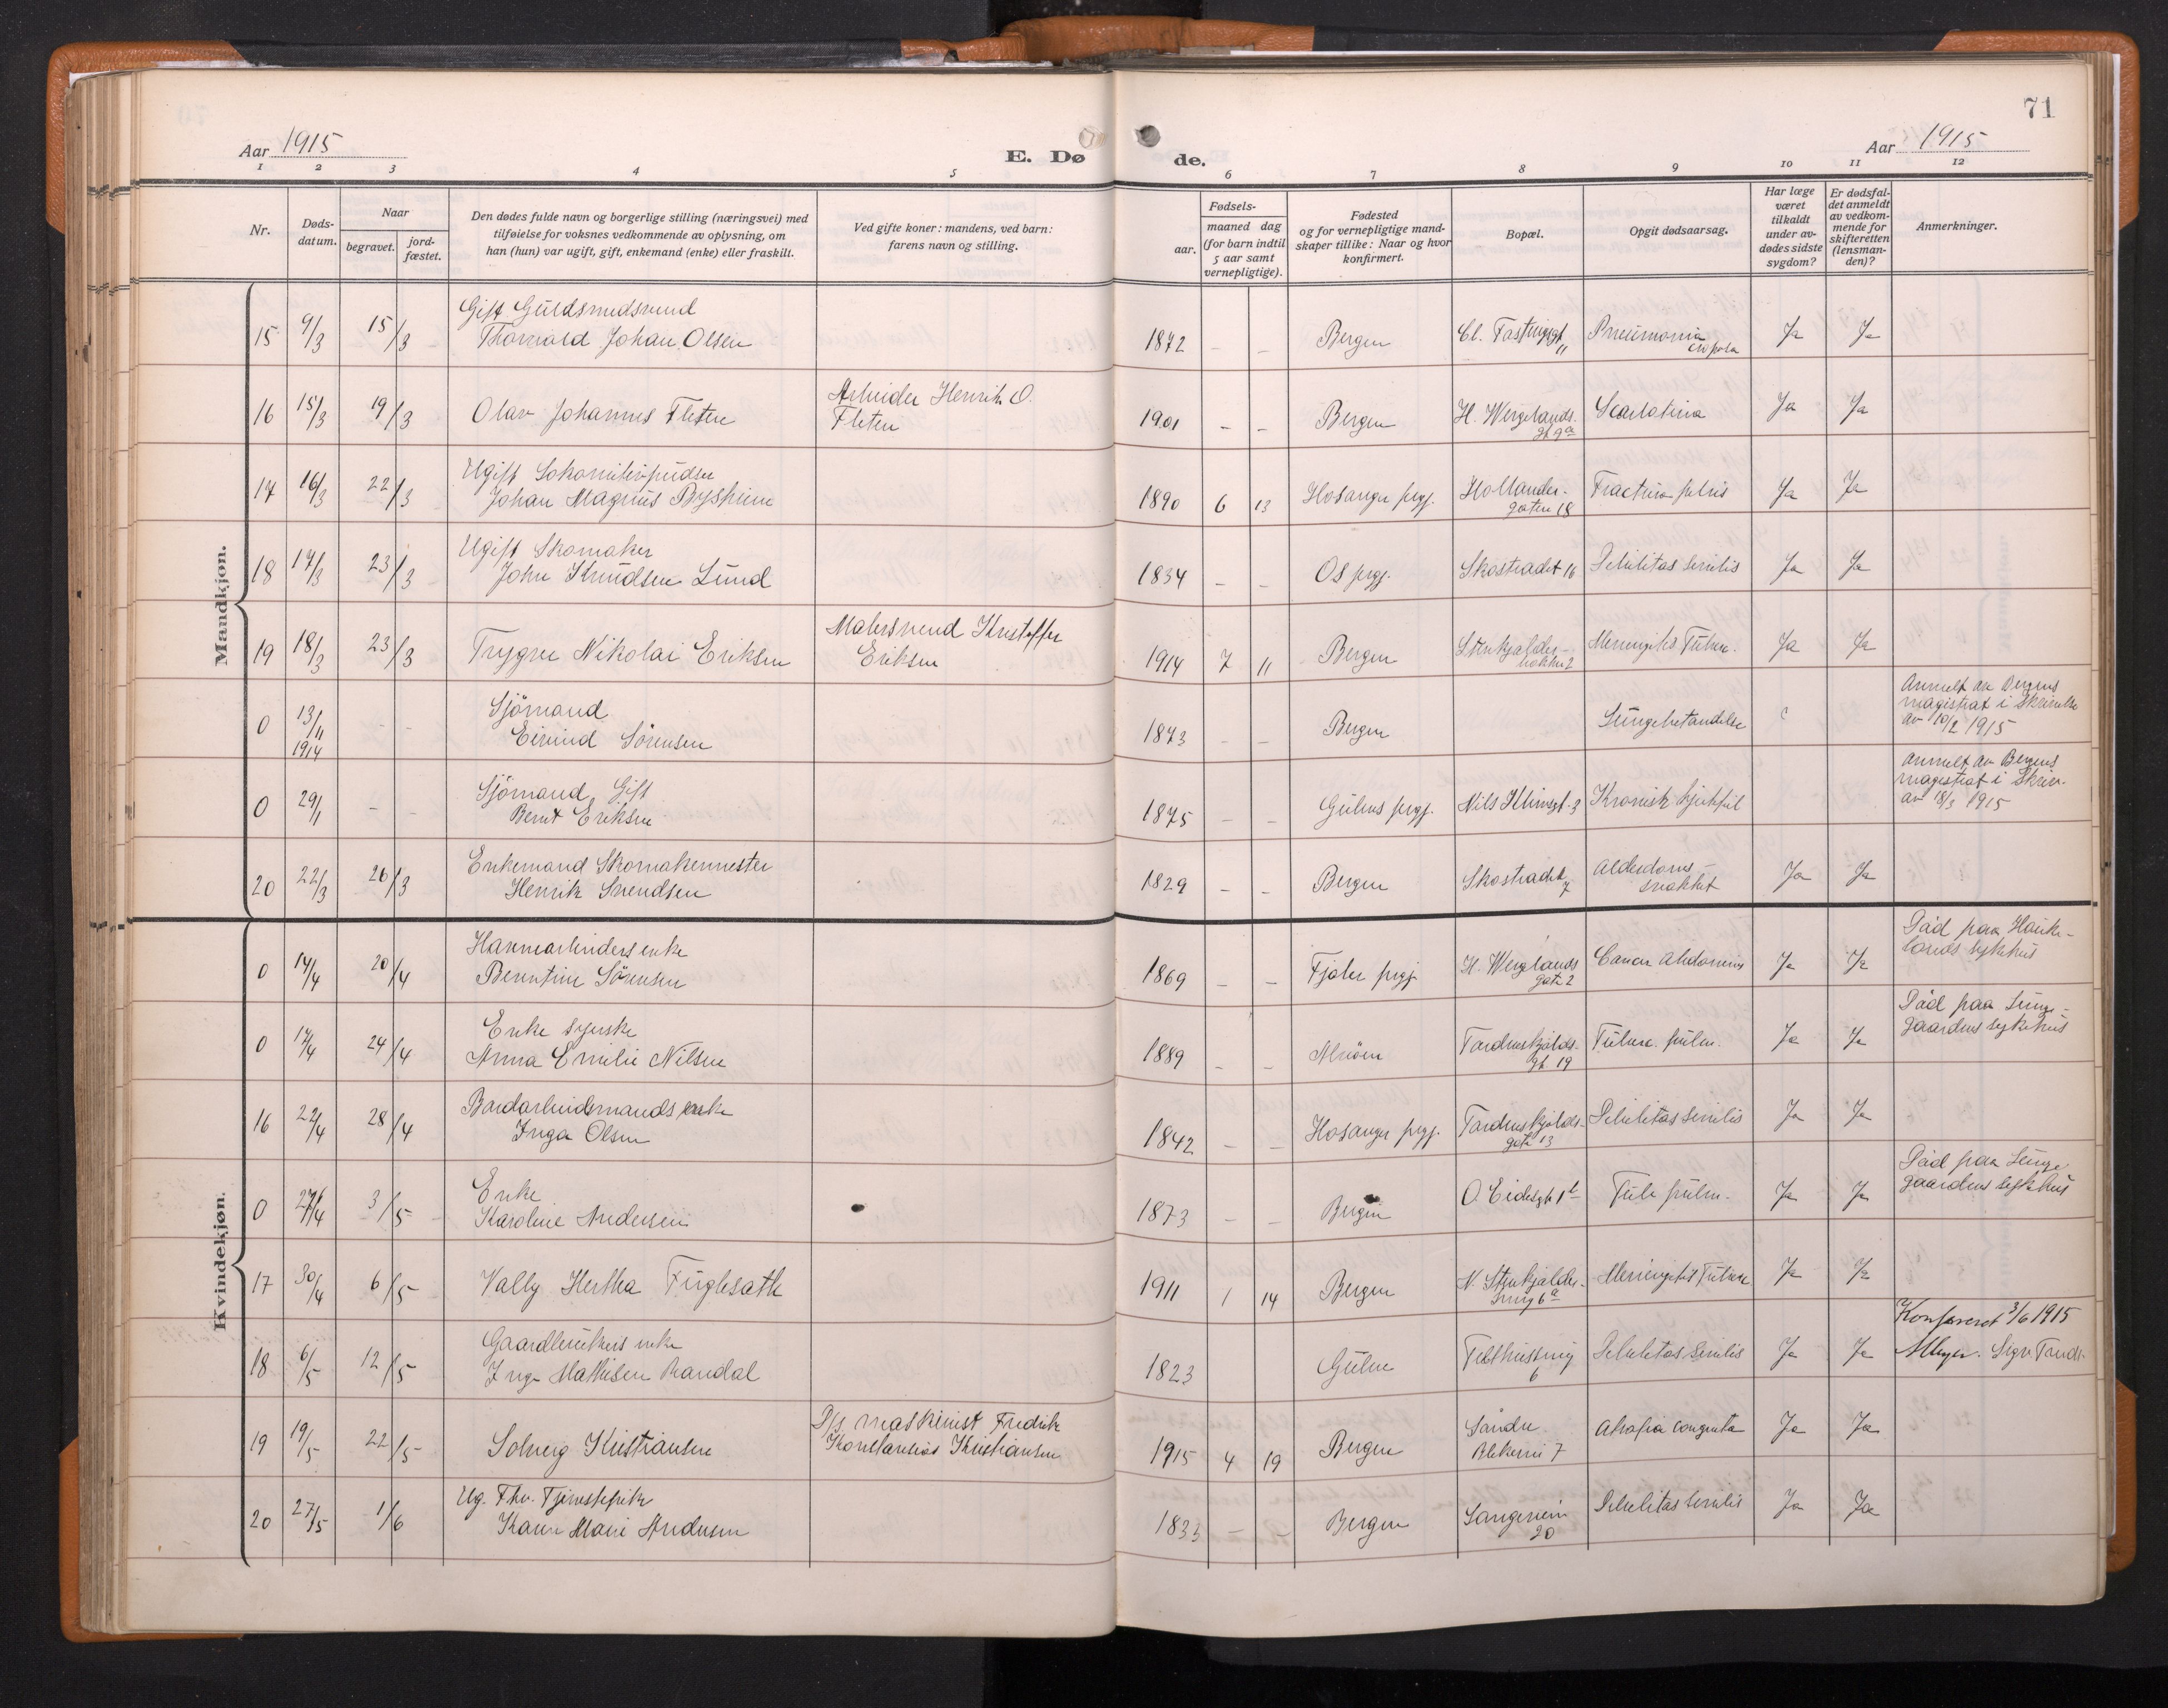 71
Aar 1915
E. Døde.
Aar 1915
1 2 3 4 5 6 7 8 9 10 11 12
Nr.
Døds-
datum.
Naar
begravet.
jord-
fæstet.
Den dødes fulde navn og borgerlige stilling (næringsvei) med
tilføielse for voksnes vedkommende av oplysning, om
han (hun) var ugift, gift, enkemand (enke) eller fraskilt.
Ved gifte koner: mandens, ved barn:
farens navn og stilling.
Fødsels-
aar.
maaned dag
(for barn indtil
5 aar samt
vernepligtige).
Fødested
og for vernepligtige mand-
skaper tillike: Naar og hvor
konfirmert.
Bopæl.
Opgit dødsaarsag.
Har læge
været
tilkaldt
under av-
dødes sidste
sygdom?
Er dødsfal-
det anmeldt
av vedkom-
mende for
skifteretten
(lensman-
den)?
Anmerkninger.
Mandkjøn.
15 9/3 15/3 Gift Guldsmedsvend
Thorvald Johan Olsen
1872 - - Bergen Cl. Fastingsgt
11
Pneumonia
Ja Ja
16 15/3 19/3 Olav Johannes Fleten
Arbeider Henrik O.
Fleten
1901 - - Bergen H. Wergelands-
gt 9a
Scarlatina Ja Ja
17 16/3 22/3 Ugift Lokomotivpudser
Johan Magnus Bysheim
1890 6 13 Hosanger prgj. Hollander-
gaten 18
Fractura pelvis Ja Ja
18 17/3 23/3 Ugift Skomaker
John Knudsen Lund
1834 - - Os prgj. Skostrædet 16 Debilitas senilis Ja Ja
19 18/3 23/3 Trygve Nikolai Eriksen
Malersvend Kristoffer
Eriksen
1914 7 11 Bergen Stenkjelder-
bakken 2
Meningitis Tuberc. Ja Ja
0 13/11
1914
- - Sjömand
Eivind Sörensen
1873 - - Bergen Lungebetændelse
Anmelt av Bergens
magistrat i Skrivelse
av 10/2 1915
0 29/1 - - Sjömand, Gift
Bernt Eriksen
1875 - - Gulens prgj. Nils Klimsgt. 3 Kronisk hjertfeil
Anmelt av Bergens
magistrat i Skriv.
av 18/3 1915
20 22/3 26/3 Enkemand Skomakermester
Henrik Svendsen
1829 - - Bergen Skostrædet
7
Alderdoms-
svakhet
Ja Ja
Kvindekjøn.
0 14/4 20/4 Havnearbeiders enke
Berntine Sörensen
1869 - - Fjaler prgj. H. Wergelands
gate 2
Cancer Abdominis Ja Ja
Död paa Hauke-
lands sykehus
0 17/4 24/4 Enke syerske
Anna Emilie Nilsen
1889 - - Tordenskjolds-
gt 19
Tuberc. pulm. Ja Ja
Död paa Lunge-
gaardens sykehus
16 22/4 28/4 enke
Inga Olsen
1842 - - Hosanger prgj. Tordenskjolds-
gate 13
Debilitas senilis Ja Ja
0 27/4 3/5 Enke
Karoline Andersen
1873 - - Bergen O. Eidesgt 1b Tub. pulm. Ja Ja
Död paa Lunge-
gaardens sykehus
17 30/4 6/5 Vally Hertha Fuglesæth
1911 1 14 Bergen N. Stenkjelder-
smug 6a
Meningitis Tuberc Ja Ja
18 6/5 12/5 Gaardbrukers enke
Inga Mathisen Randal
1823 Gulen 6 Debilitas senilis Ja Ja
Konfereret 3/6 1915
19 19/5 22/5 Solveig Kristiansen
D/s maskinist Fredrik
Konstantius Kristiansen
1915 4 19 Bergen Söndre
Blekevei 7
Atrofia congenita Ja Ja
20 27/5 1/6 Ug. Fhv. Tjenestepike
Karen Marie Andersen
1833 - - Bergen
20
Debilitas senilis Ja Ja